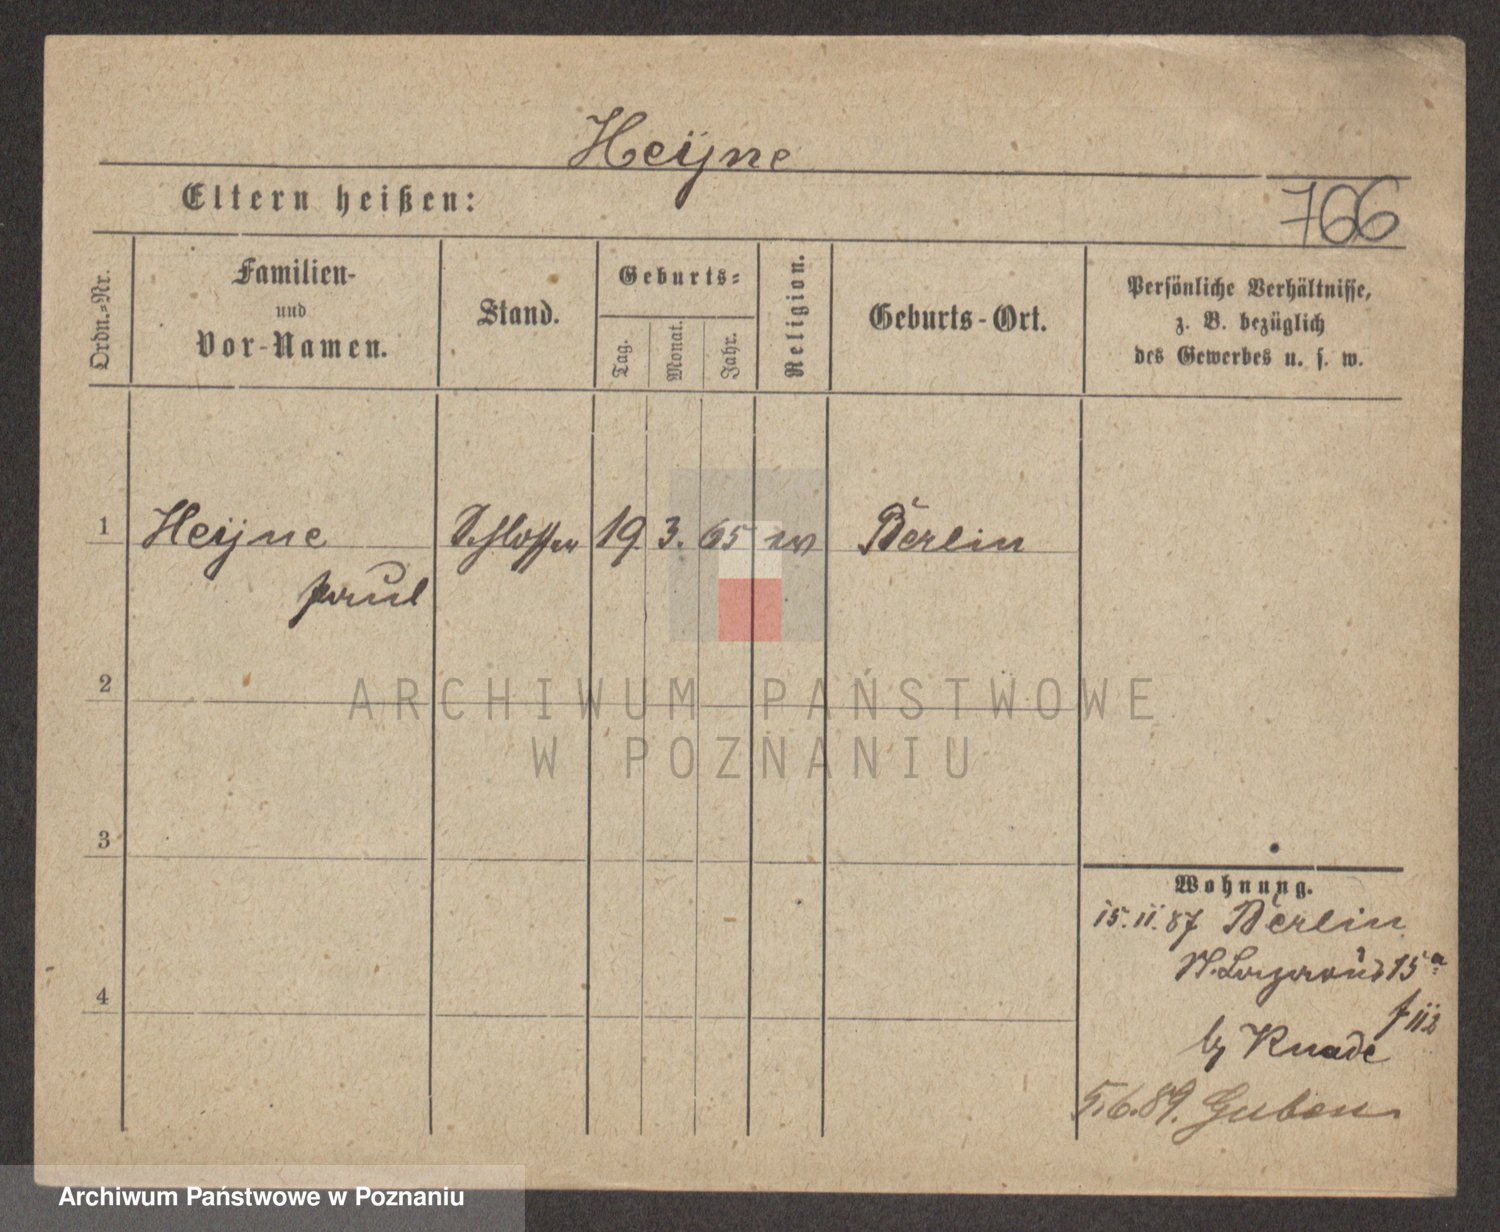 Heÿne
Eltern heißen:
766
Ordn.-Nr.
Familien-
und
Vor-Namen.
Stand.
Geburts-
Tag.
Monat.
Jahr.
Religion.
Geburts-Ort.
Persönliche Verhältnisse,
z. B. bezüglich
des Gewerbes u. s. w.
1 Heÿne Schlosser 19. 3. 65 ev Berlin
Paul
2
3
4
Wohnung.
15.11.87 Berlin
St. Lazarus 15a
by Knade
5.6.89. Guben
ARCHIWUM PAŃSTWOWE
W POZNANIU
Archiwum Państwowe w Poznaniu